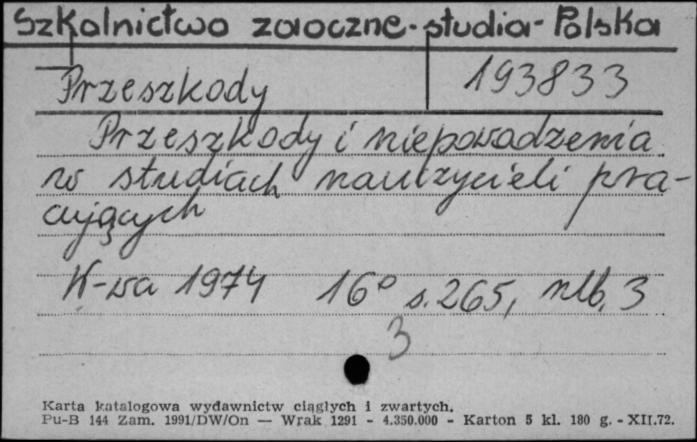 Szkolnictwo zaoczne-studia-Polska
Przeszkody 193833
Przeszkody i niepowodzenia
w studiach nauczycieli pra-
cujących
K-wa 1974 16° s. 265, nlb. 3
3
Karta katalogowa wydawnictw ciągłych i zwartych.
Pu-B 144 Zam. 1991/DW/On — Wrak 1291 - 4.350.000 - Karton 5 kl. 180 g. - XII.72.